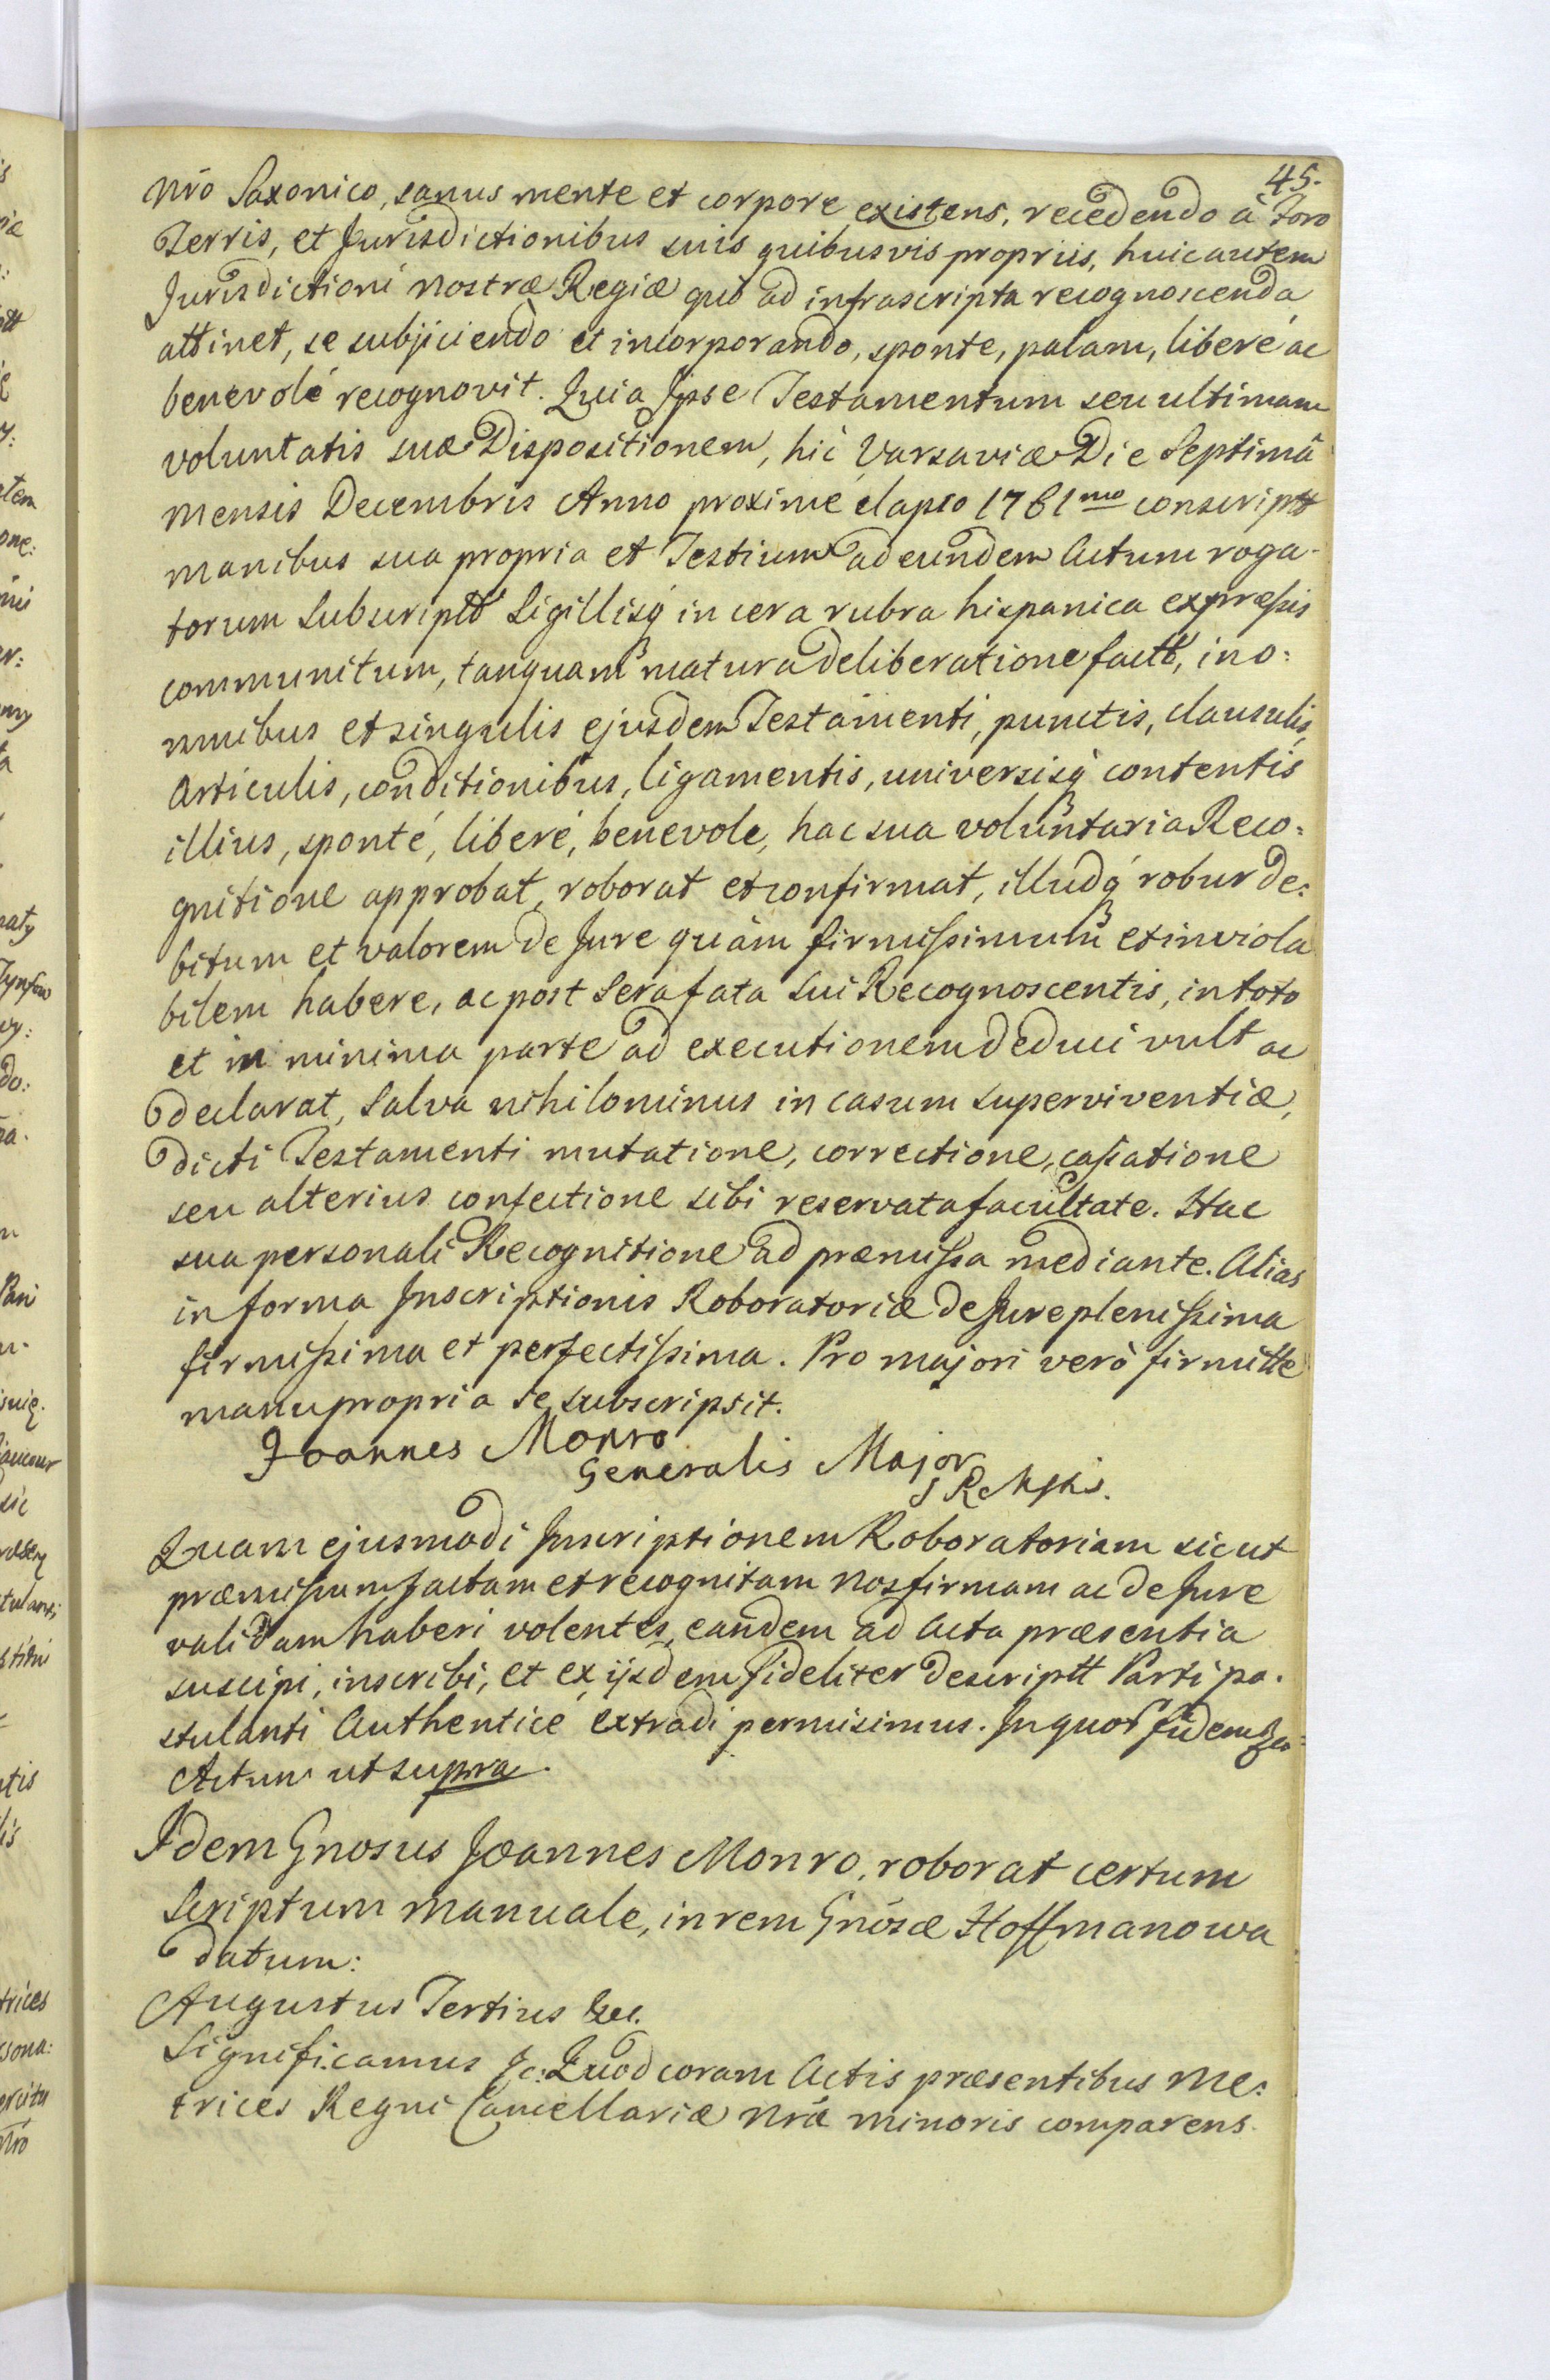 45.
Nro Saxonico, sanus mente et corpore existens, recedendo à Foro
Terris, et Jurisdictionibus suis quibusvis propriis, huic autem
Jurisdictioni nostræ Regiæ quò ad infrascripta recognoscenda
attinet, se subjiciendo et incorporando, sponte, palam, liberé ac
benevolé recognovit. Quia Ipse Testamentum seu ultimam
voluntatis suæ Dispositionem, hic Varsaviæ Die Septimâ
mensis Decembris Anno proximé elapso 1761mo conscriptt
manibus sua propria et Testium ad eundem Actum roga-
torum Subscriptt Sigillisq in cera rubra hispanica expræssis
communitum, tanquam matura deliberatione factt, in o:
mnibus et singulis ejusdem Testamenti, punctis, clausulis,
Articulis, conditionibus, ligamentis, universisq contentis
illius, sponté, liberé, benevole, hac sua voluntaria Reco:
gnitione approbat, roborat et confirmat, illudq robur de:
bitum et valorem de Jure quàm firmissimum et inviola
bilem habere, ac post Sera fata Sui Recognoscentis, in toto
et in minima parte ad executionem deduci vult ac
declarat, Salva nihilominus in casum superviventiæ,
dicti Testamenti mutatione, correctione, cassatione
seu alterius confectione sibi reservata facultate. Hac
sua personali Recognitione ad præmissa mediante. Alias
in forma Inscriptionis Roboratoriæ de Jure plenissima
firmissima et perfectissima. Pro majori verò firmitte
manu propria se subscripsit.
Joannes Monro
Generalis Major
Quam ejusmodi Inscriptionem Roboratoriam sicut
præmissum factam et recognitam Nos firmam ac de Jure
validam haberi volentes, eandem ad Acta præsentia
suscipi, inscribi, et ex ijsdem fideliter descriptt Parti po-
stulanti Authentice extradi permisimus. In quor fidem
Actum ut supra.
Idem Gnosus Joannes Monro, roborat certum
Scriptum manuale, in rem Gnosæ Hoffmanowa
datum:
Augustus Tertius &c.
Significamus &c: Quod coram Actis præsentibus Me:
trices Regni Cancellariæ Nræ minoris comparens